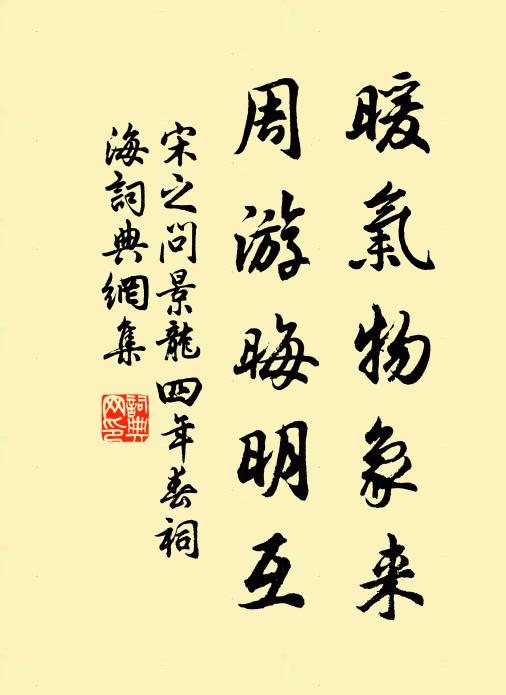 暖氣物象来
周游晦明互
宋之问景龍四年春祠
海詞典網集
詞典
网印